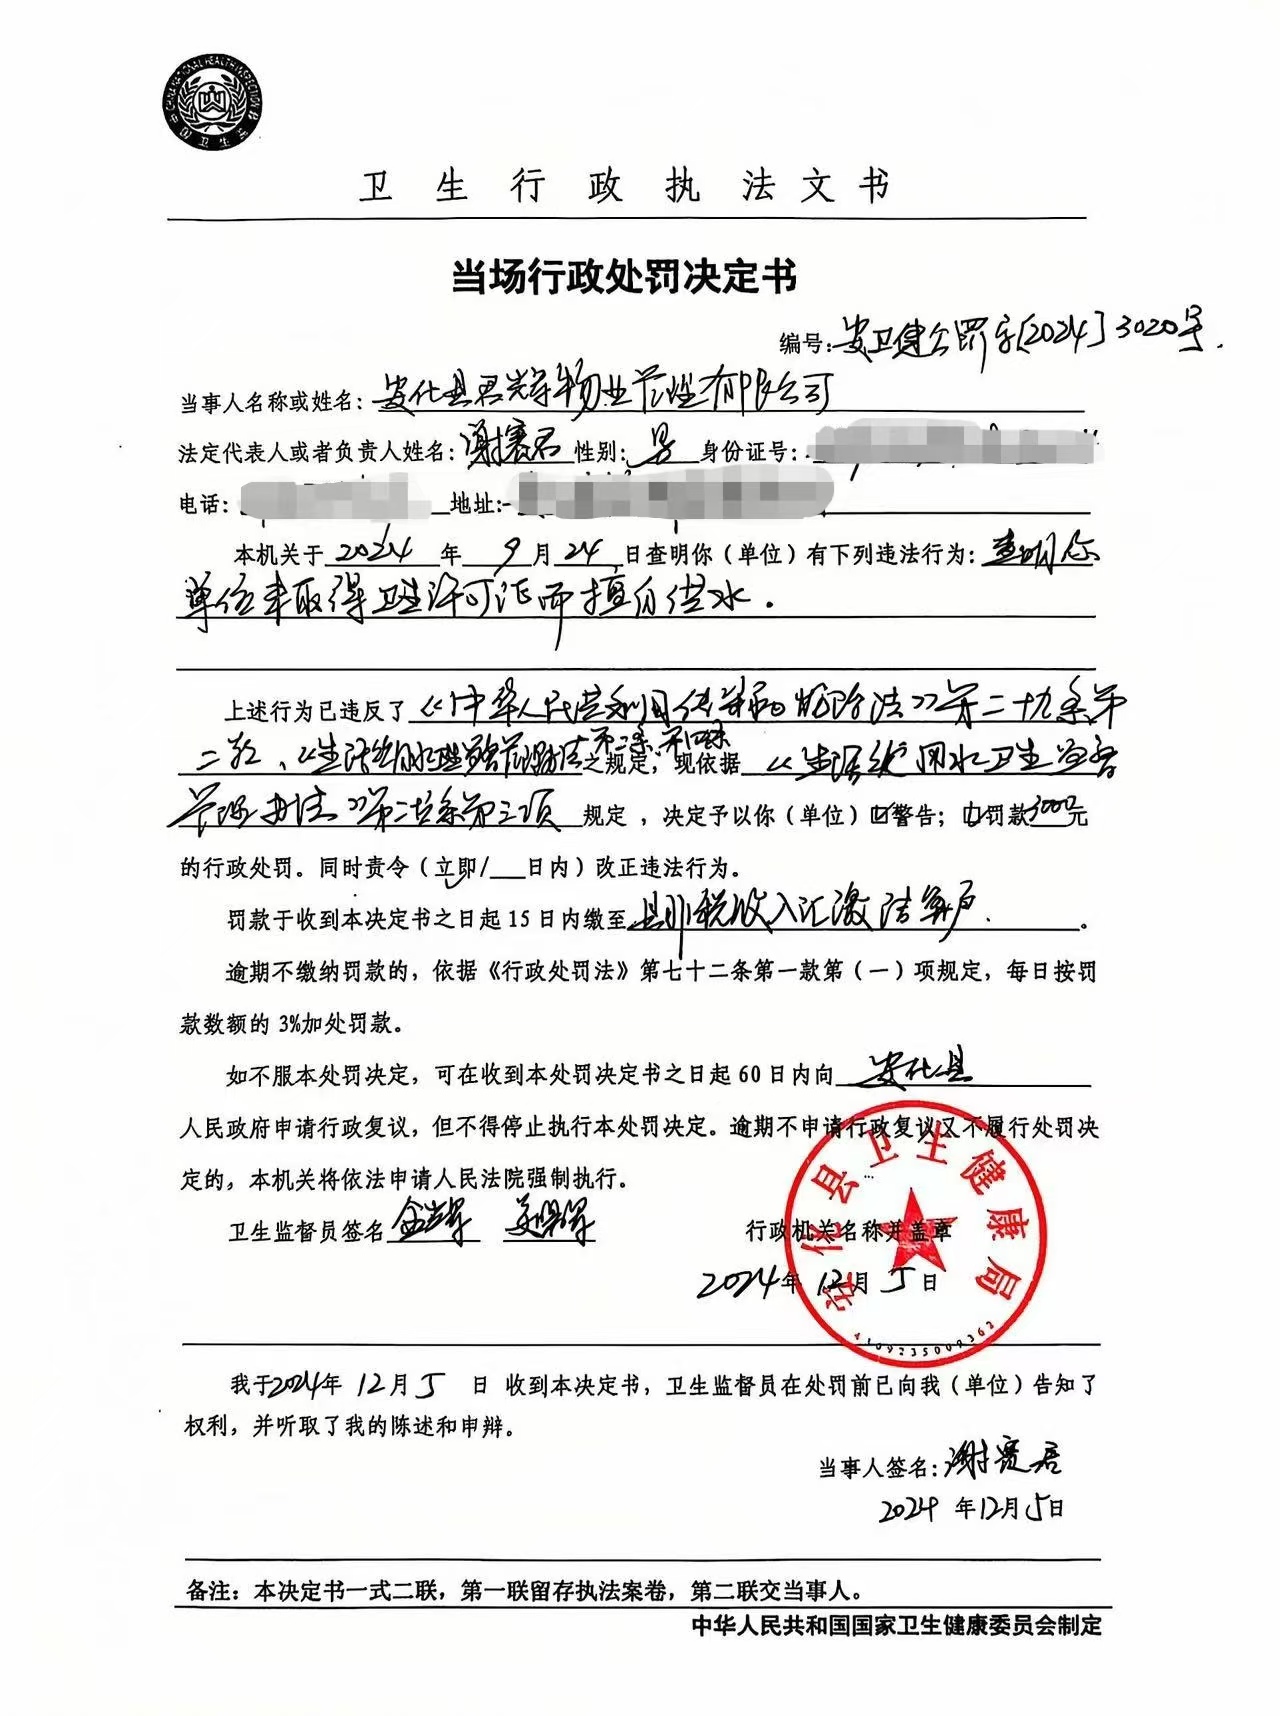 中国卫生监督
卫生行政执法文书
当场行政处罚决定书
编号：安卫健公罚字[2024]3020号
当事人名称或姓名：安化县君辉物业管理有限公司
法定代表人或者负责人姓名：谢赛君 性别：男 身份证号：
电话： 地址：
本机关于 2024 年 9 月 24 日查明你（单位）有下列违法行为：查明你
单位未取得卫生许可证而擅自供水.
上述行为已违反了《中华人民共和国传染病防治法》第二十九条第
二款、《生活饮用水 之规定，现依据《生活饮用水卫生监督
管理办法》第二十六条第三项 规定，决定予以你（单位）☑警告；☑罚款3000元
的行政处罚。同时责令（立即/___日内）改正违法行为。
罚款于收到本决定书之日起 15 日内缴至 县非税收入汇缴结算户.。
逾期不缴纳罚款的，依据《行政处罚法》第七十二条第一款第（一）项规定，每日按罚
款数额的 3%加处罚款。
如不服本处罚决定，可在收到本处罚决定书之日起 60 日内向 安化县
人民政府申请行政复议，但不得停止执行本处罚决定。逾期不申请行政复议又不履行处罚决
定的，本机关将依法申请人民法院强制执行。
卫生监督员签名 行政机关名称并盖章
安化县卫生健康局
2024年 12月 5日
4309235009362
我于2024年 12月 5 日 收到本决定书，卫生监督员在处罚前已向我（单位）告知了
权利，并听取了我的陈述和申辩。
当事人签名：谢赛君
2024 年12月5日
备注：本决定书一式二联，第一联留存执法案卷，第二联交当事人。
中华人民共和国国家卫生健康委员会制定